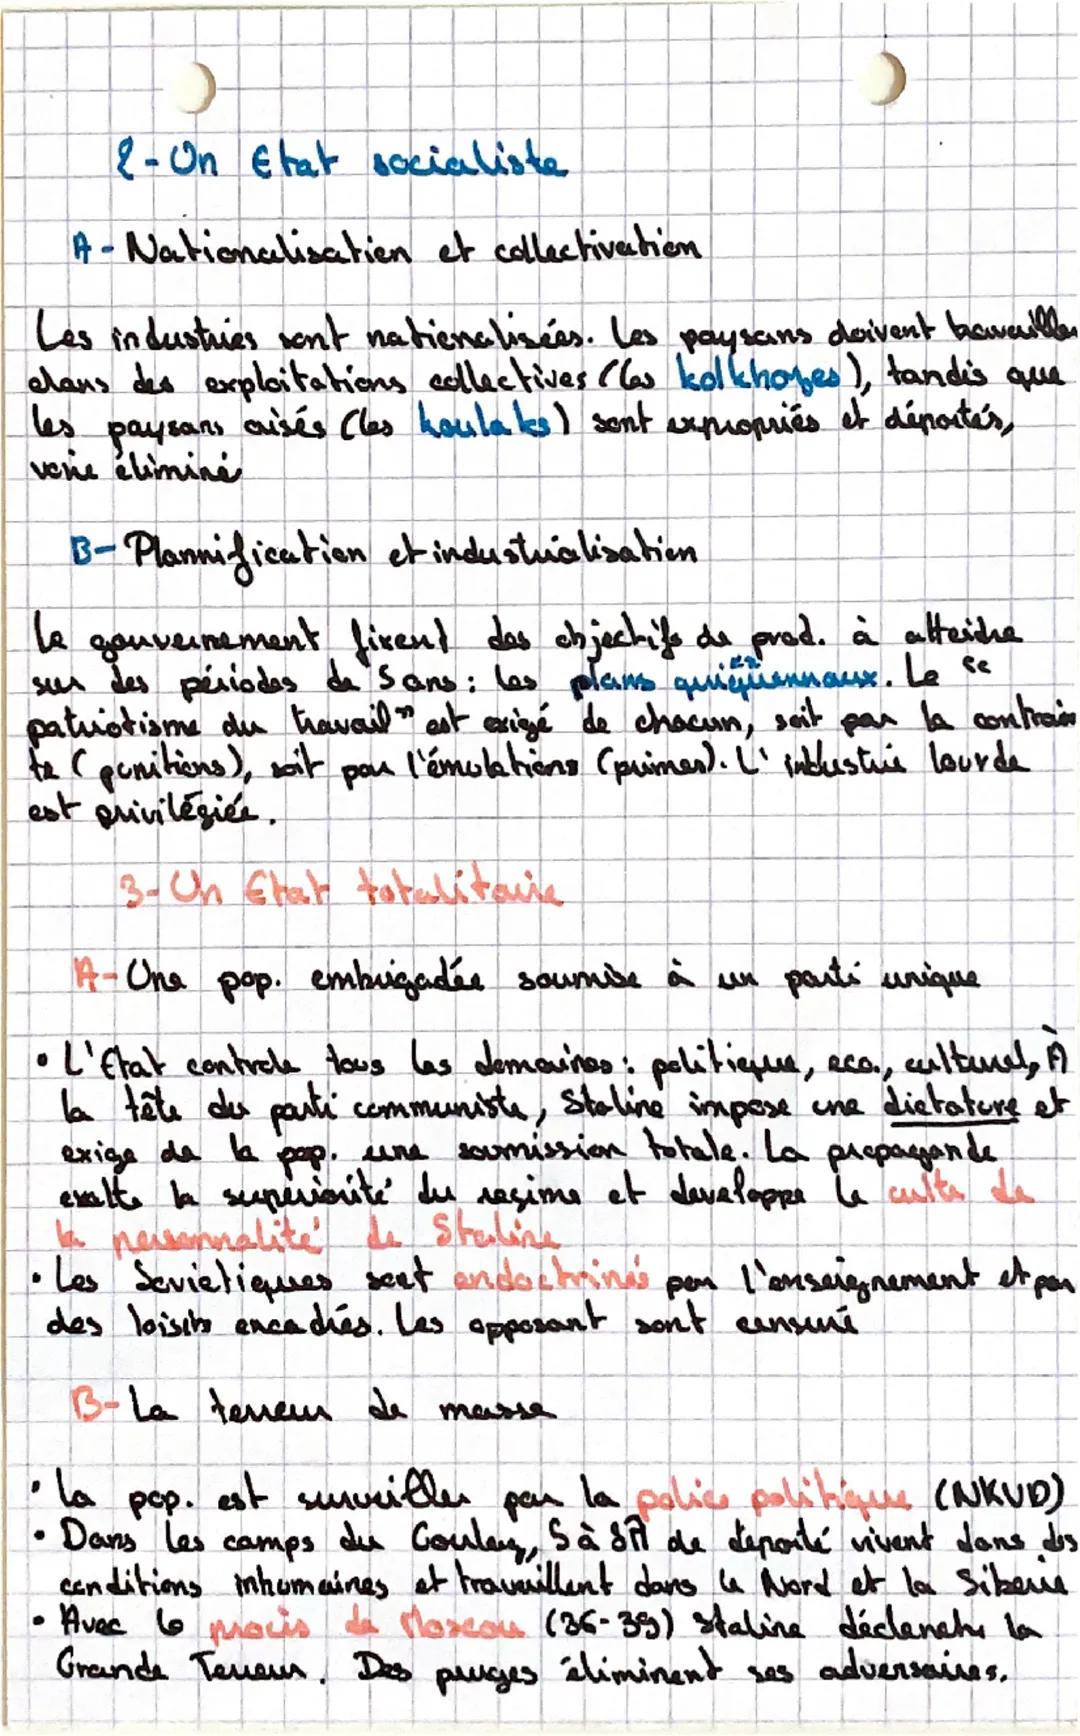 2-Un Etat socialiste
A-Nationalisation et collectivation
Les industries sont nationalisées. Les paysans doivent travailler
dans des exploitations collectives (les kolkhozes), tandis que
les paysans aisés (les koulaks) sont expropriés et déportés,
voire éliminé
B-Plannification et industrialisation
Le gouvernement fixent des objectifs de prod. à atteidre
sur des périodes de 5 ans: les plans quiquennaux. Le "
patriotisme du travail" est exigé de chacun, soit par la contrain
te (punitions), soit par l'émulations (primes). L'industrie lourde
est privilégiée.
3-Un Etat totalitaire
A-Une pop. embrigadée soumise à un parti unique
• L'Etat controle tous les domaines: politique, eco., culturel, À
la tête du parti communiste, Staline impose une dictature et
exige de la pop. une soumission totale. La propagande
exalte la supériorité du regime et developpe le culte de
la personnalité de Staline
• Les Sovietiques sont endoctrinés par l'enseignement et par
des loisirs encadrés. Les opposant sont censuré
B-La terreur de masse
• La pop. est surveiller par la police politique (NKVD)
• Dans les camps du Goulag, 5 à 8M de deporté vivent dans des
conditions inhumaines et travaillent dans le Nord et la Siberie
• Avec le procis de Moscou (36-39) Staline déclenche la
Grande Terreur. Des pruges éliminent ses adversaires.